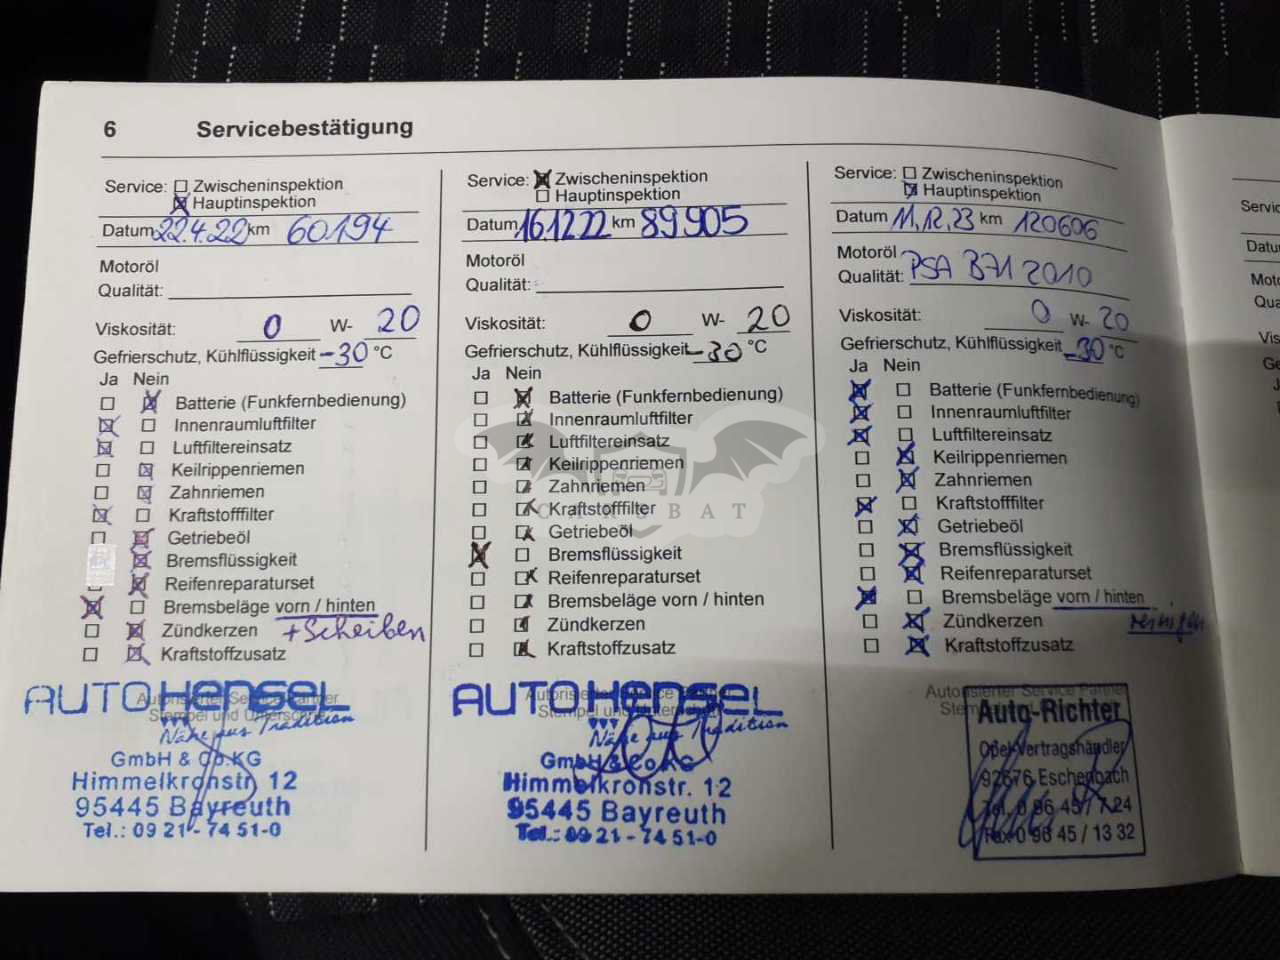 6 Servicebestätigung
Service: Zwischeninspektion
Hauptinspektion
Datum 22.4.22 km 60194
Motoröl
Qualität:
Viskosität: 0 W- 20
Gefrierschutz, Kühlflüssigkeit -30 °C
Ja Nein
Batterie (Funkfernbedienung)
Innenraumluftfilter
Luftfiltereinsatz
Keilrippenriemen
Zahnriemen
Kraftstofffilter
Getriebeöl
Bremsflüssigkeit
Reifenreparaturset
Bremsbeläge vorn / hinten
Zündkerzen + Scheiben
Kraftstoffzusatz
Autorisierter Service Partner
Stempel und Unterschrift
AUTO HENSEL
Nähe aus Tradition
GmbH & Co.KG
Himmelkronstr. 12
95445 Bayreuth
Tel.: 09 21 - 74 51-0
Service: Zwischeninspektion
Hauptinspektion
Datum 16.12.22 km 89905
Motoröl
Qualität:
Viskosität: 0 W- 20
Gefrierschutz, Kühlflüssigkeit -30 °C
Ja Nein
Batterie (Funkfernbedienung)
Innenraumluftfilter
Luftfiltereinsatz
Keilrippenriemen
Zahnriemen
Kraftstofffilter
Getriebeöl
Bremsflüssigkeit
Reifenreparaturset
Bremsbeläge vorn / hinten
Zündkerzen
Kraftstoffzusatz
Autorisierter Service Partner
Stempel und Unterschrift
AUTO HENSEL
Nähe aus Tradition
GmbH & Co.KG
Himmelkronstr. 12
95445 Bayreuth
Tel.: 09 21 - 74 51-0
Service: Zwischeninspektion
Hauptinspektion
Datum 11.12.23 km 120606
Motoröl
Qualität: PSA B71 2010
Viskosität: 0 W- 20
Gefrierschutz, Kühlflüssigkeit -30 °C
Ja Nein
Batterie (Funkfernbedienung)
Innenraumluftfilter
Luftfiltereinsatz
Keilrippenriemen
Zahnriemen
Kraftstofffilter
Getriebeöl
Bremsflüssigkeit
Reifenreparaturset
Bremsbeläge vorn / hinten
Zündkerzen reinigen
Kraftstoffzusatz
Autorisierter Service Partner
Auto-Richter
Opel-Vertragshändler
92676 Eschenbach
Tel. 0 96 45 / 7 24
Fax 0 96 45 / 13 32
CARSBAT